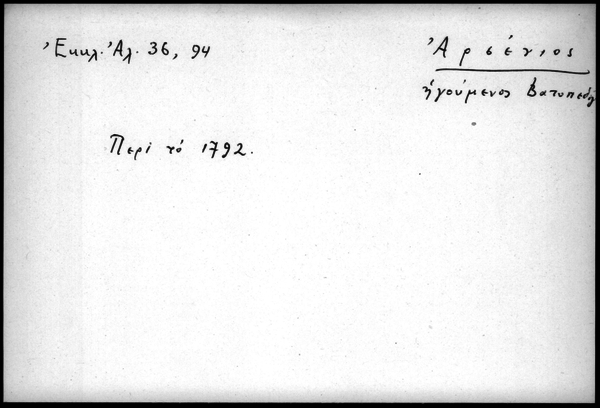 Ἐκκλ. Ἀλ. 36, 94
Ἀρσένιος
ἡγούμενος Βατοπεδ
Περὶ τό 1792.